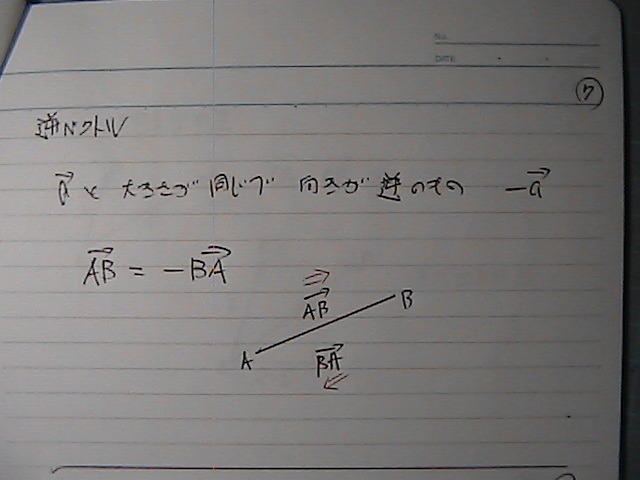 No.
DATE
⑦
逆ベクトル
a⃗と 大きさが 同じで 向きが 逆のもの −a⃗
AB⃗ = −BA⃗
⇒
AB⃗
B
A
BA⃗
⇐